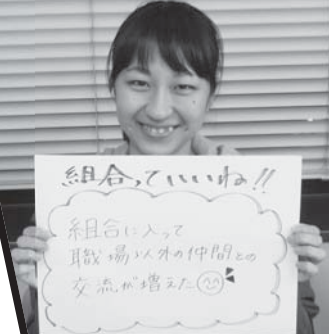 組合っていいね!!
組合に入って
職場以外の仲間との
交流が増えた